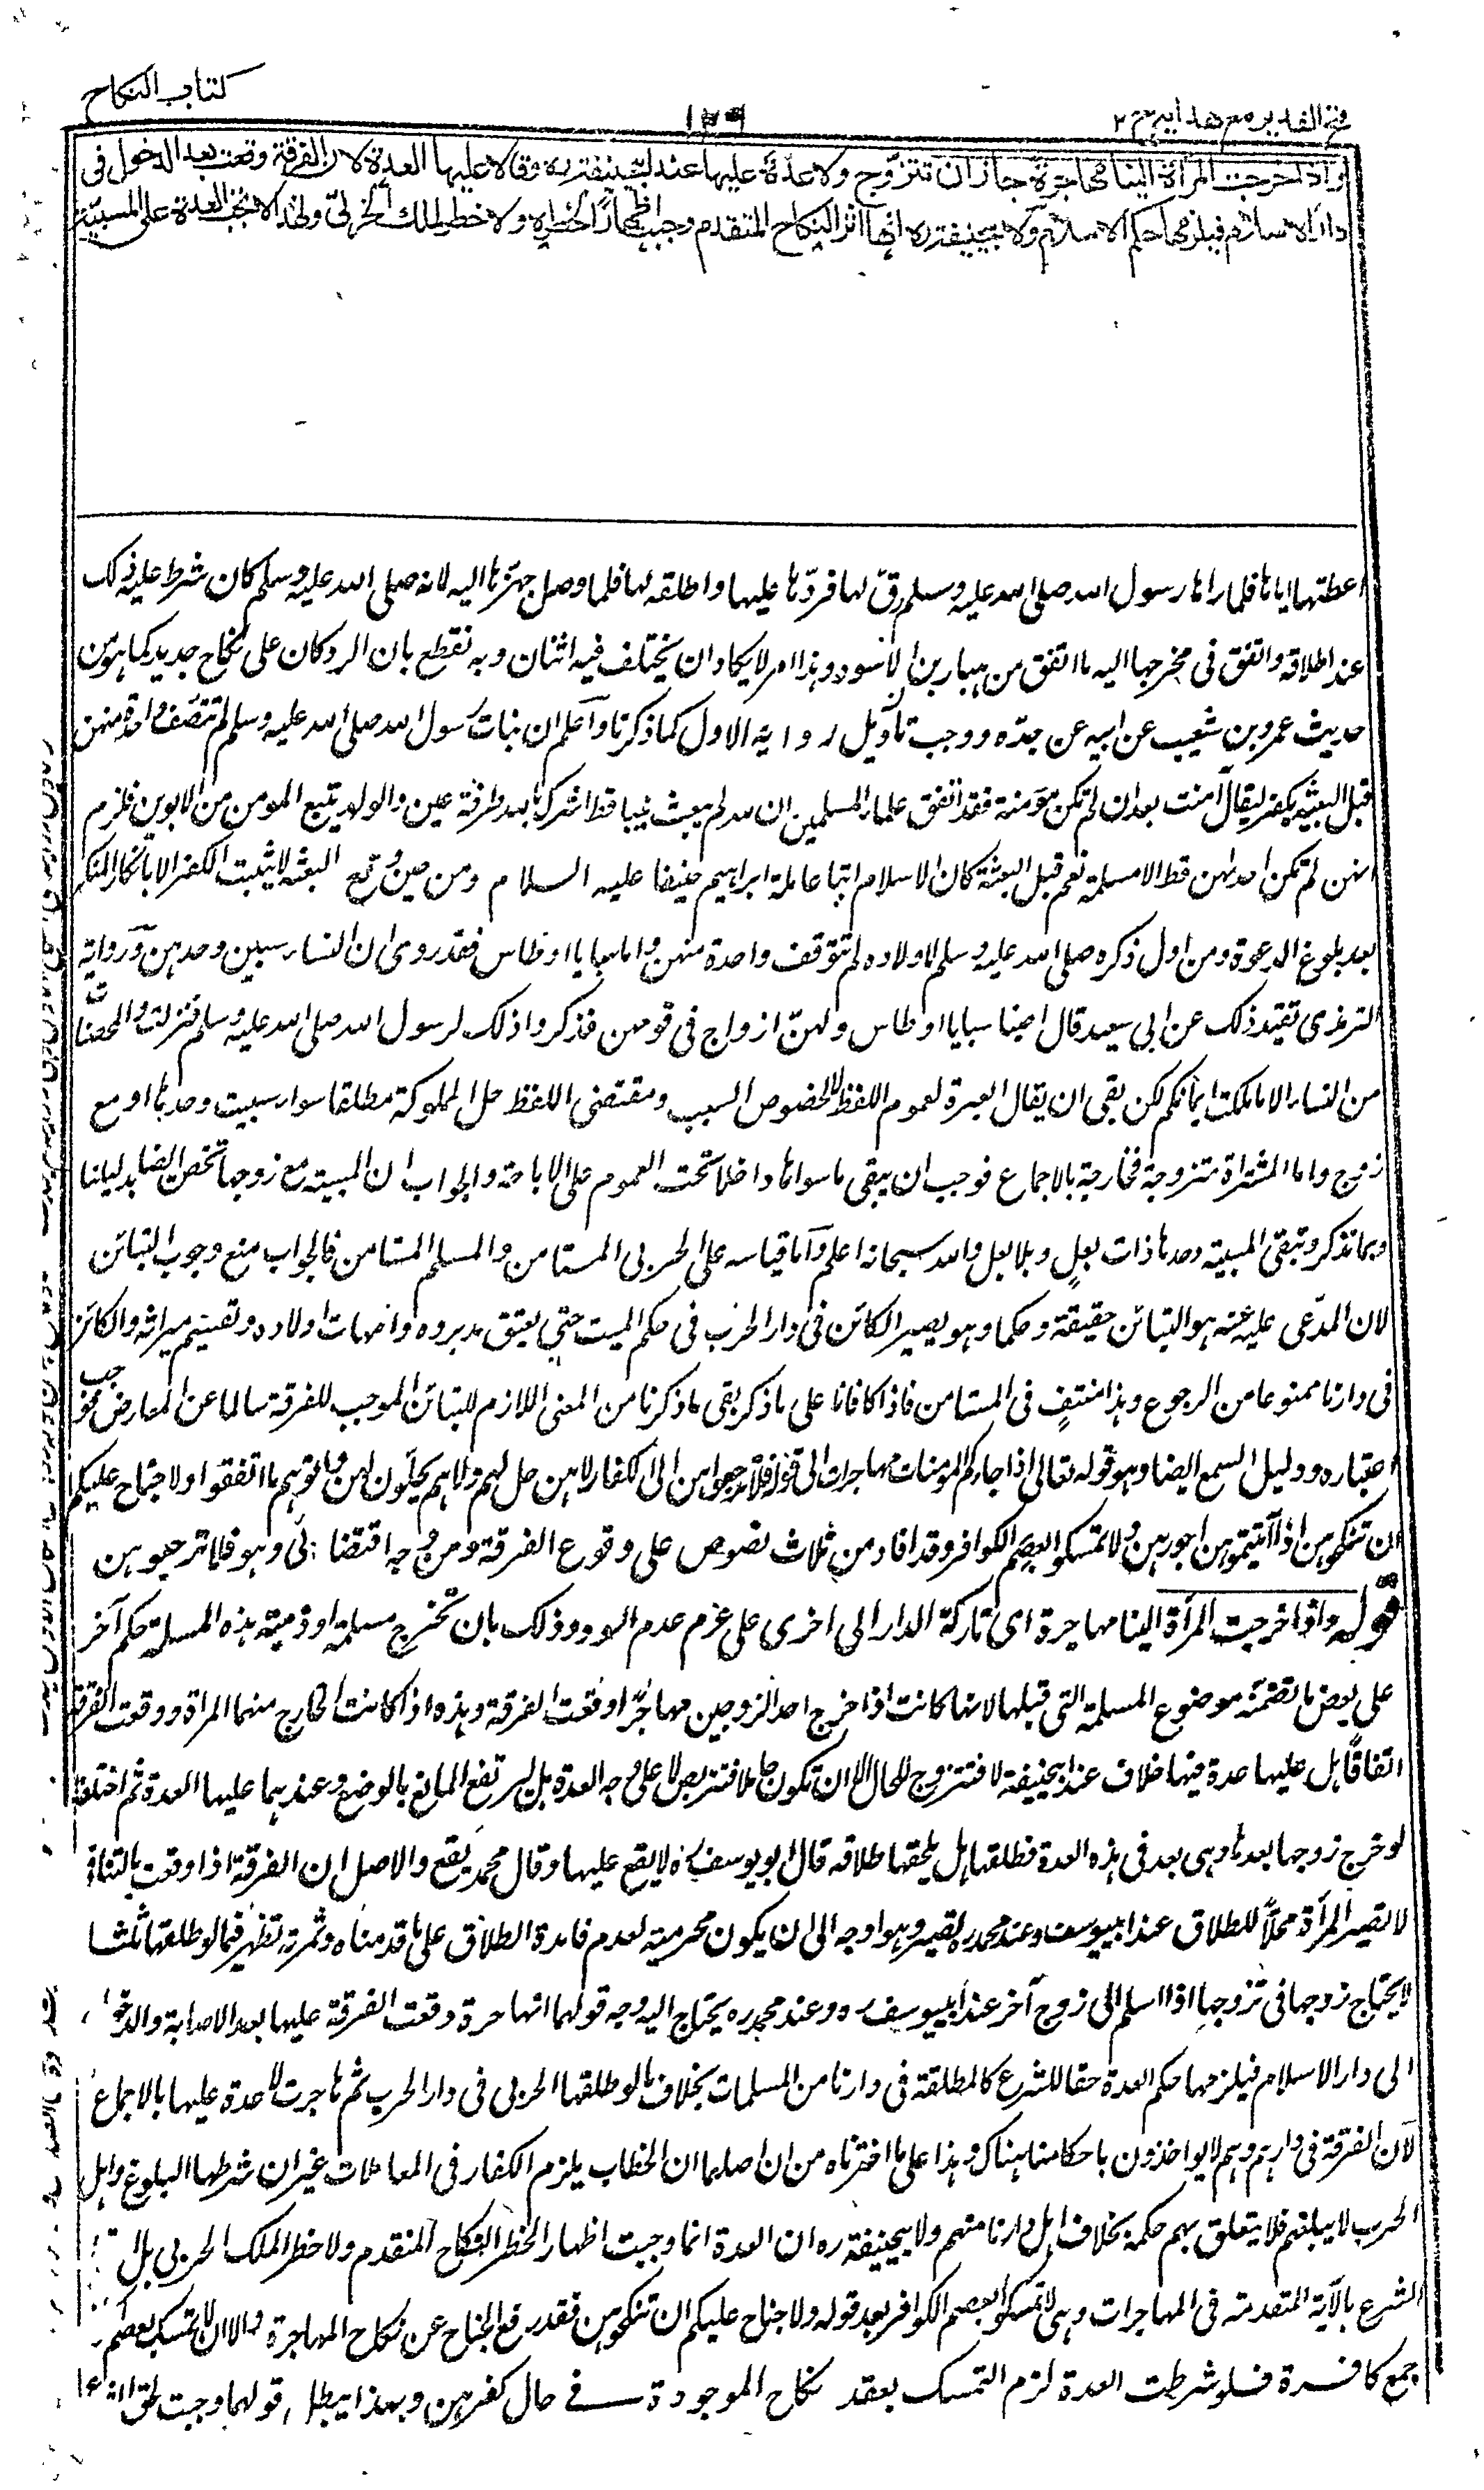 كتاب النكاح
فتح القدير مع هدايه ج ٢
واذا خرجت المرأة الينا مهاجرة جاز ان تتزوج ولا عدة عليها عند ابيحنيفة ره وقالا عليها العدة لان الفرقة وقعت بعد الدخول فى
دار الاسلام فيلزمها حكم الاسلام ولابيحنيفة ره انها اثر النكاح المتقدم وجبت اظهارا لخطره ولا خطر لملك الحربىّ ولهذا لا تجب العدة على المسبيّة
اعطتها اياها فلما راها رسول الله صلى الله عليه وسلم رقّ لها فردّها عليها واطلقه لها فلما وصل جهّزها اليه لانه صلى الله عليه وسلم كان شرط عليه ذلك
عند اطلاقه واتفق فى مخرجها اليه ما اتفق من هبار بن الاسود وهذا امر لا يكاد ان يختلف فيه اثنان وبه نقطع بان الرد كان على نكاح جديد كما هو من
حديث عمرو بن شعيب عن ابيه عن جدّه ووجب تأويل رواية الاول كما ذكرنا وآعلم ان بنات رسول الله صلى الله عليه وسلم لم تتصف واحدة منهن
قبل البعثة بكفر ليقال آمنت بعد ان لم تكن مؤمنة فقد اتفق علماء المسلمين ان الله لم يبعث نبيا قط اشرك بالله طرفة عين والولد يتبع المومن من الابوين فلزم
انهن لم تكن احداهن قط الا مسلمة نعم قبل البعثة كان الاسلام اتباع ملة ابراهيم حنيفا عليه السلام ومن حين وقع البعثة لا يثبت الكفر الا بانكار المنكر
بعد بلوغ الدعوة ومن اول ذكره صلى الله عليه وسلم لاولاده لم تتوقف واحدة منهن واما سبايا اوطاس فقد روى ان النساء سبين وحدهن ورواية
الترمذى تفيد ذلك عن ابى سعيد قال اصبنا سبايا اوطاس ولهنّ ازواج فى قومهن فذكروا ذلك لرسول الله صلى الله عليه وسلم فنزلت والمحصنات
من النساء الا ما ملكت ايمانكم لكن بقى ان يقال العبرة لعموم اللفظ لا لخصوص السبب ومقتضى اللفظ حل المملوكة مطلقا سواء سبيت وحدها او مع
زوج واما المشتراة متزوجة فخارجة بالاجماع فوجب ان يبقى ما سواها داخلا تحت العموم على الاباحة والجواب ان المسبية مع زوجها تخص ايضا بدليلنا
وبما نذكر وتبقى المسبية وحدها ذات بعل وبلا بعل والله سبحانه اعلم وآما قياسه على الحربى المستامن والمسلم المستامن فالجواب منع وجوب التباين
لان المدّعى عليه عنه هو التباين حقيقة وحكما وهو يصير الكائن فى دار الحرب فى حكم الميت حتى يعتق مدبروه وامهات اولاده وتقسيم ميراثه والكائن
فى دارنا ممنوعا من الرجوع وهذا منتفٍ فى المستامن فاذا كافانا على ما ذكر بقى ما ذكرنا من المعنى اللازم للتباين الموجب للفرقة سالما عن المعارض فوجب
اعتباره ودليل السمع ايضا وهو قوله تعالى اذا جاءكم المومنات مهاجرات الى قوله فلا ترجعوهن الى الكفار لا هن حل لهم ولا هم يحلّون لهن وآتوهم ما انفقوا ولا جناح عليكم
ان تنكحوهن اذا آتيتموهن اجورهن ولا تمسكوا بعصم الكوافر وقد افاد من ثلاث نصوص على وقوع الفرقة ومن وجه اقتضائى وهو فلا ترجعوهن
قوله واذا خرجت المرأة الينا مهاجرة اى تاركة الدار الى اخرى على عزم عدم العود وذلك بان تخرج مسلمة او ذمية هذه المسئلة حكم آخر
على بعض ما تضمنه موضوع المسئلة التى قبلها لانها كانت اذا خرج احد الزوجين مهاجرا وقعت الفرقة وهذه اذا كانت الخارج منهما المراة ووقعت الفرقة
اتفاقا هل عليها عدة فيها خلاف عند ابيحنيفة لا فتتزوج للحال الا ان تكون حاملا فتتربص لا على وجه العدة بل ليرتفع المانع بالوضع وعندهما عليها العدة ثم اختلفا
لو خرج زوجها بعدها وهى بعد فى هذه العدة فطلقها هل يلحقها طلاقه قال ابو يوسف ره لا يقع عليها وقال محمد يقع والاصل ان الفرقة اذا وقعت بالتنافى
لا تصير المرأة محلّا للطلاق عند ابييوسف وعند محمد ره تصير وهو اوجه الا ان يكون محرمية لعدم فائدة الطلاق على ما قدمناه وثمرته تظهر فيما لو طلقها ثلثا
لا يحتاج زوجها فى تزوجها اذا اسلم الى زوج آخر عند ابييوسف ره وعند محمد ره يحتاج اليه وجه قولهما انها حرة وقعت الفرقة عليها بعد الاصابة والدخول
الى دار الاسلام فيلزمها حكم العدة حقا للشرع كالمطلقة فى دارنا من المسلمات بخلاف ما لو طلقها الحربى فى دار الحرب ثم هاجرت لا عدة عليها بالاجماع
لان الفرقة فى دارهم وهم لا يواخذون باحكامنا هناك وهذا على ما اخترناه من ان اصلهما ان الخطاب يلزم الكفار فى المعاملات غير ان شرطها البلوغ واهل
الحرب لا يبلغهم فلا يتعلق بهم حكمه بخلاف اهل دارنا منهم ولابيحنيفة ره ان العدة انما وجبت اظهارا لخطر النكاح المتقدم ولا خطر لملك الحربى بل
الشرع بالآية المتقدمة فى المهاجرات وهى لا تمسكوا بعصم الكوافر بعد قوله ولا جناح عليكم ان تنكحوهن فقد رفع الجناح عن نكاح المهاجرة والا ان لا تمسك بعصم
جمع كافرة فلو شرطت العدة لزم التمسك بعقد نكاح الموجودة فى حال كفرهن وبهذا يبطل قولهما وجبت لحق